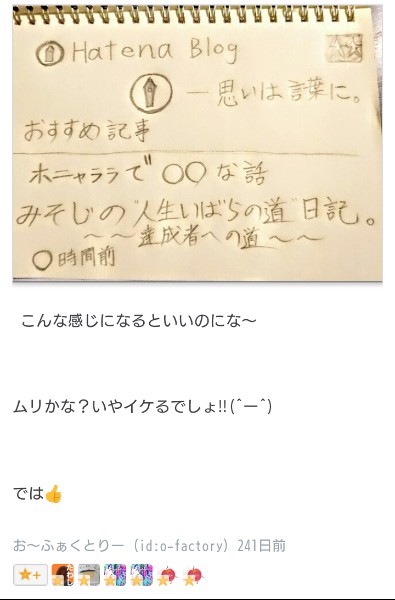 Hatena Blog
―思いは言葉に。
おすすめ記事
ホニャララで〇〇な話
みそじの"人生いばらの道"日記。
～～達成者への道～～
〇時間前
こんな感じになるといいのにな～
ムリかな？いやイケるでしょ!!(^ー^)
では👍
お～ふぁくとりー (id:o-factory) 241日前
★+